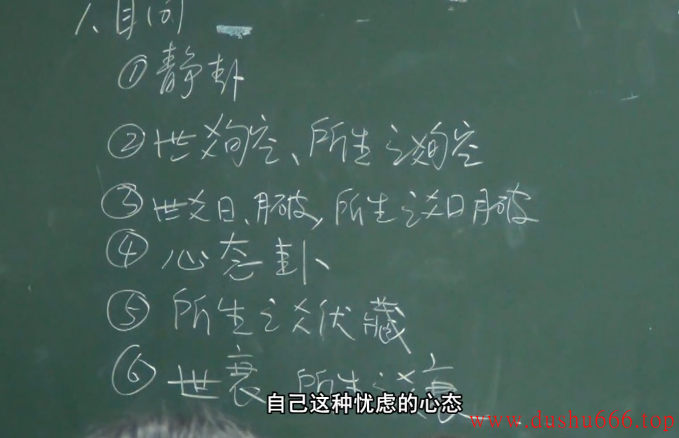 人自问
①静卦
②世爻旬空、所生之爻旬空
③世爻日、月破,所生之爻日月破
④心态卦
⑤所生之爻伏藏
⑥世衰,所生之爻衰
自己这种忧虑的心态
www.dushu666.top